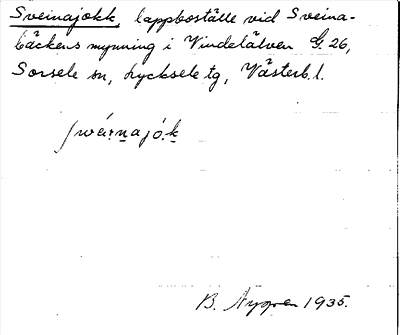 Sveinajokk, lappboställe vid Sveina-
bäckens mynning i Vindelälven G. 26,
Sorsele sn, Lycksele tg, Västerb. l.
B. Nygren 1935.